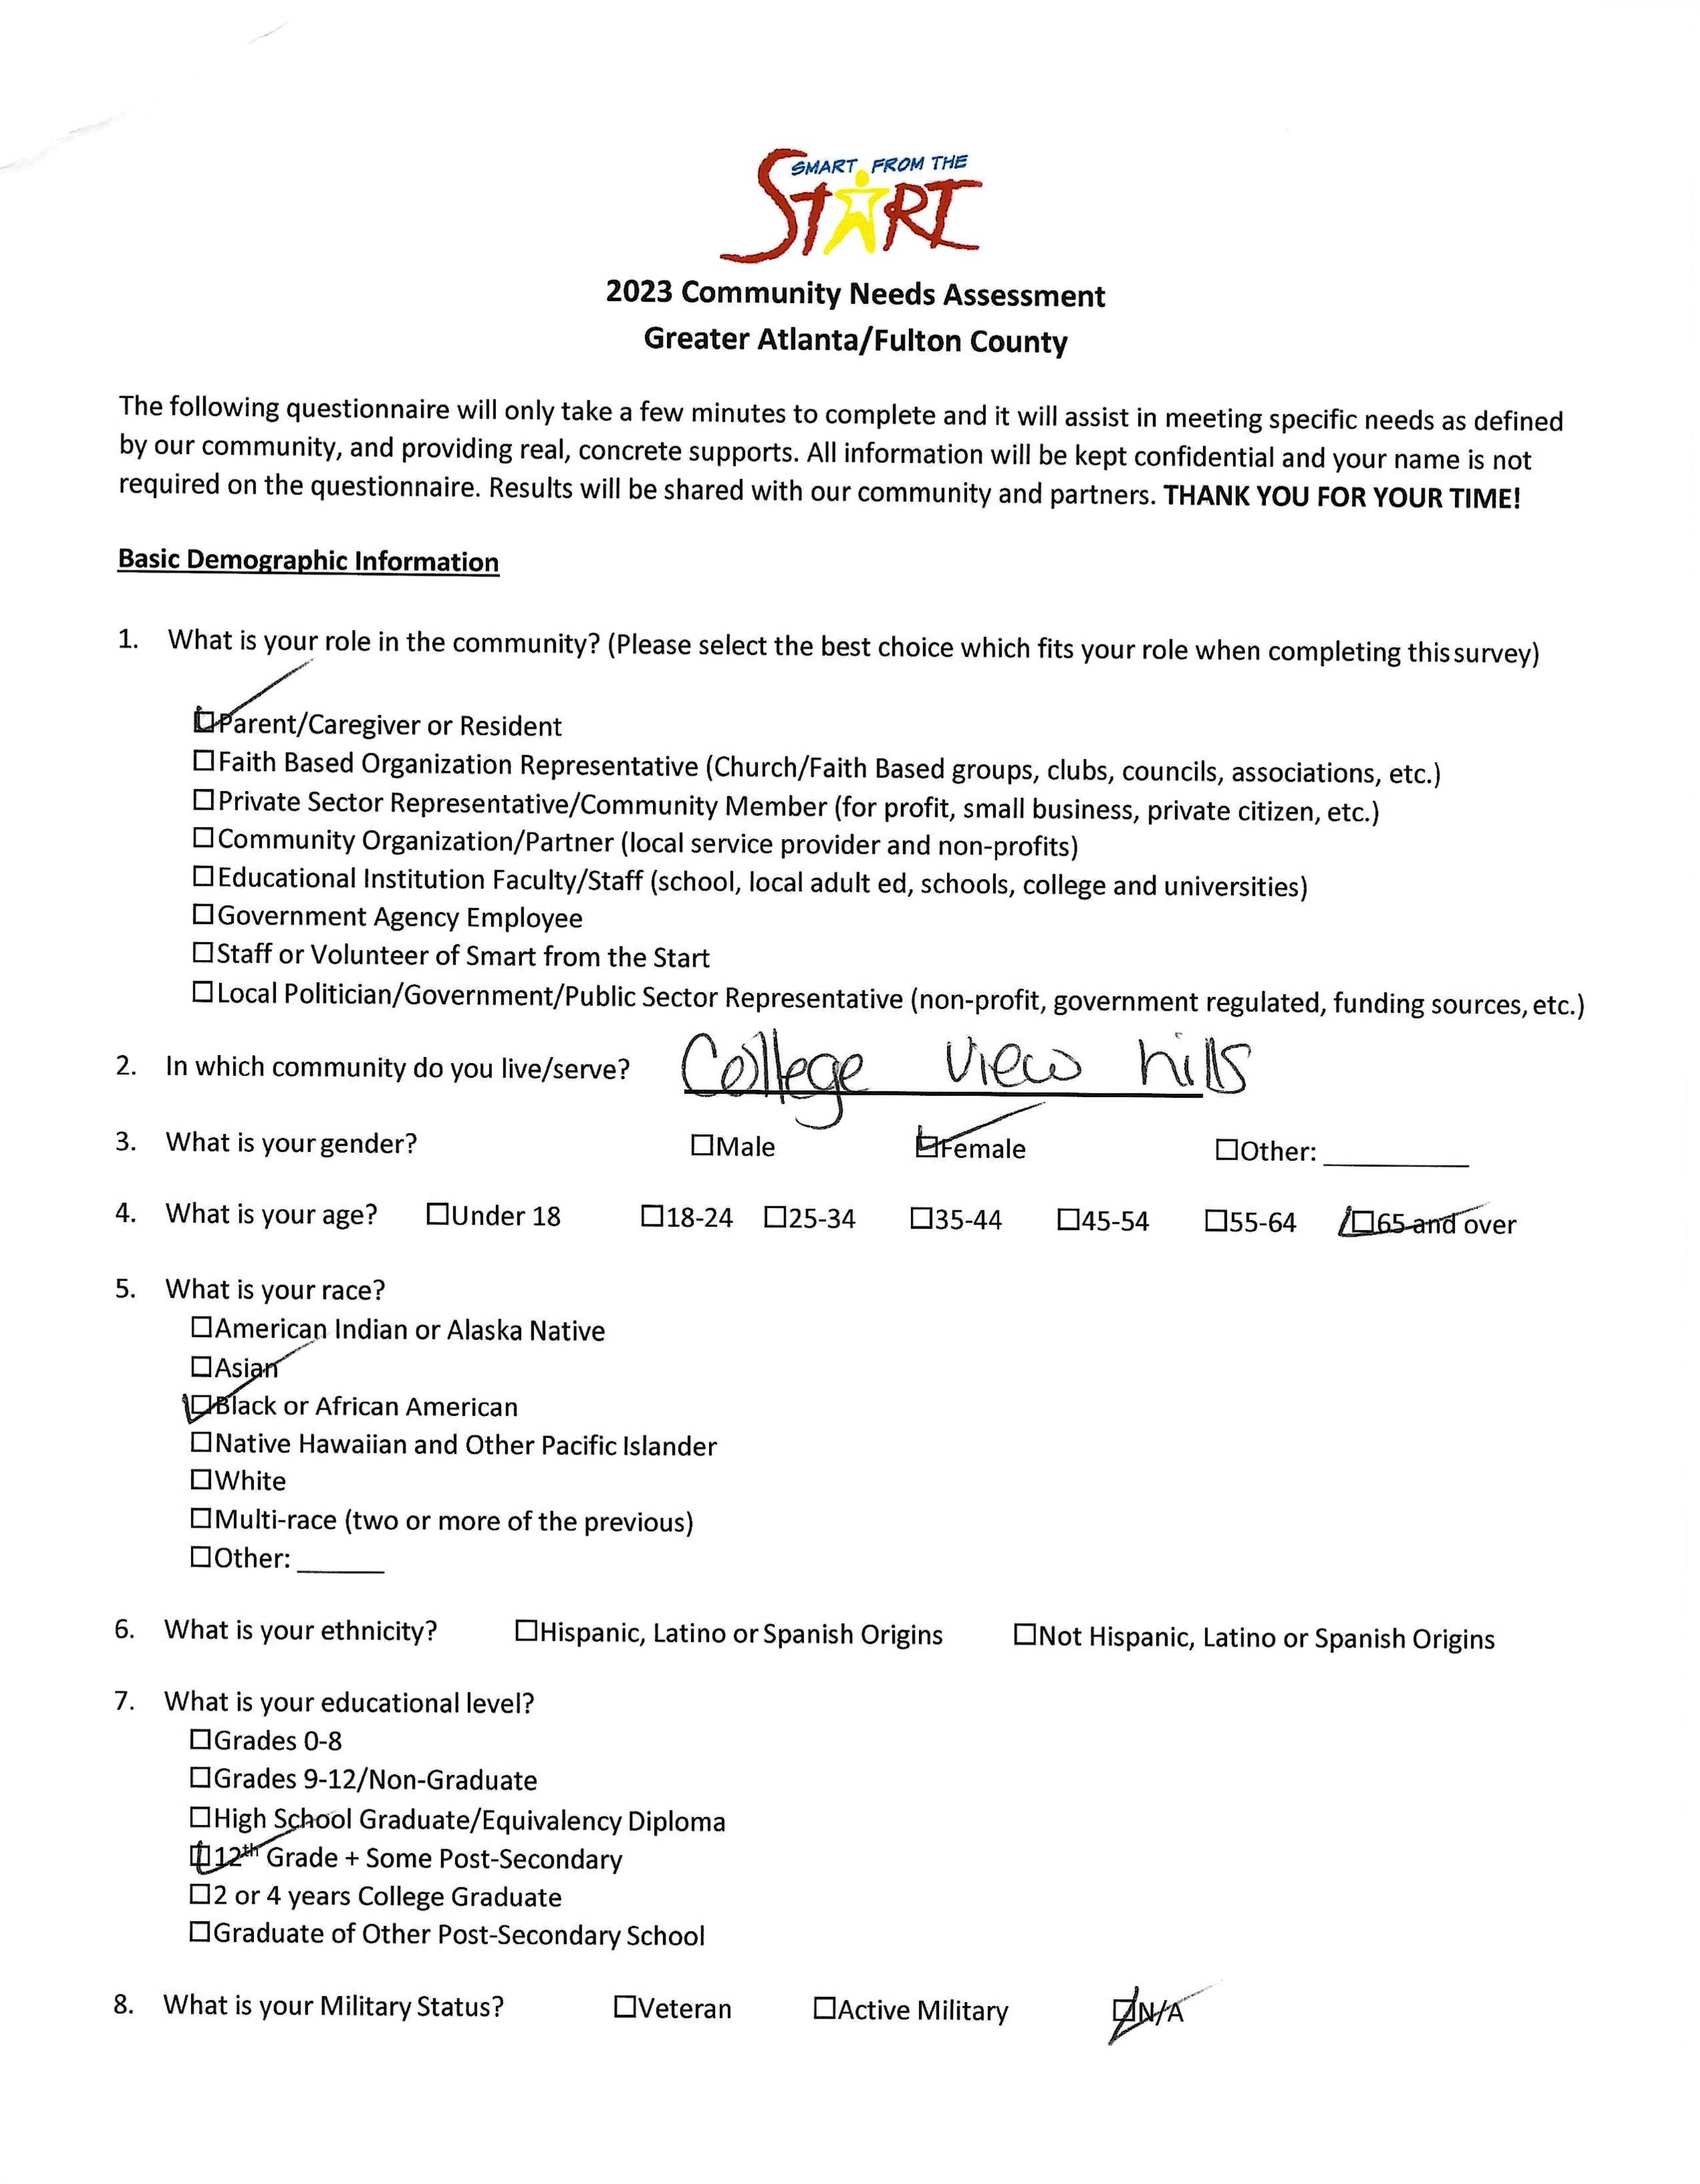 SMART FROM THE
START
2023 Community Needs Assessment
Greater Atlanta/Fulton County
The following questionnaire will only take a few minutes to complete and it will assist in meeting specific needs as defined
by our community, and providing real, concrete supports. All information will be kept confidential and your name is not
required on the questionnaire. Results will be shared with our community and partners. THANK YOU FOR YOUR TIME!
Basic Demographic Information
1. What is your role in the community? (Please select the best choice which fits your role when completing this survey)
☑Parent/Caregiver or Resident
☐Faith Based Organization Representative (Church/Faith Based groups, clubs, councils, associations, etc.)
☐Private Sector Representative/Community Member (for profit, small business, private citizen, etc.)
☐Community Organization/Partner (local service provider and non-profits)
☐Educational Institution Faculty/Staff (school, local adult ed, schools, college and universities)
☐Government Agency Employee
☐Staff or Volunteer of Smart from the Start
☐Local Politician/Government/Public Sector Representative (non-profit, government regulated, funding sources, etc.)
2. In which community do you live/serve? College view hills
3. What is your gender? ☐Male ☑Female ☐Other: ________
4. What is your age? ☐Under 18 ☐18-24 ☐25-34 ☐35-44 ☐45-54 ☐55-64 ☑65 and over
5. What is your race?
☐American Indian or Alaska Native
☐Asian
☑Black or African American
☐Native Hawaiian and Other Pacific Islander
☐White
☐Multi-race (two or more of the previous)
☐Other: ______
6. What is your ethnicity? ☐Hispanic, Latino or Spanish Origins ☐Not Hispanic, Latino or Spanish Origins
7. What is your educational level?
☐Grades 0-8
☐Grades 9-12/Non-Graduate
☐High School Graduate/Equivalency Diploma
☑12th Grade + Some Post-Secondary
☐2 or 4 years College Graduate
☐Graduate of Other Post-Secondary School
8. What is your Military Status? ☐Veteran ☐Active Military ☑N/A